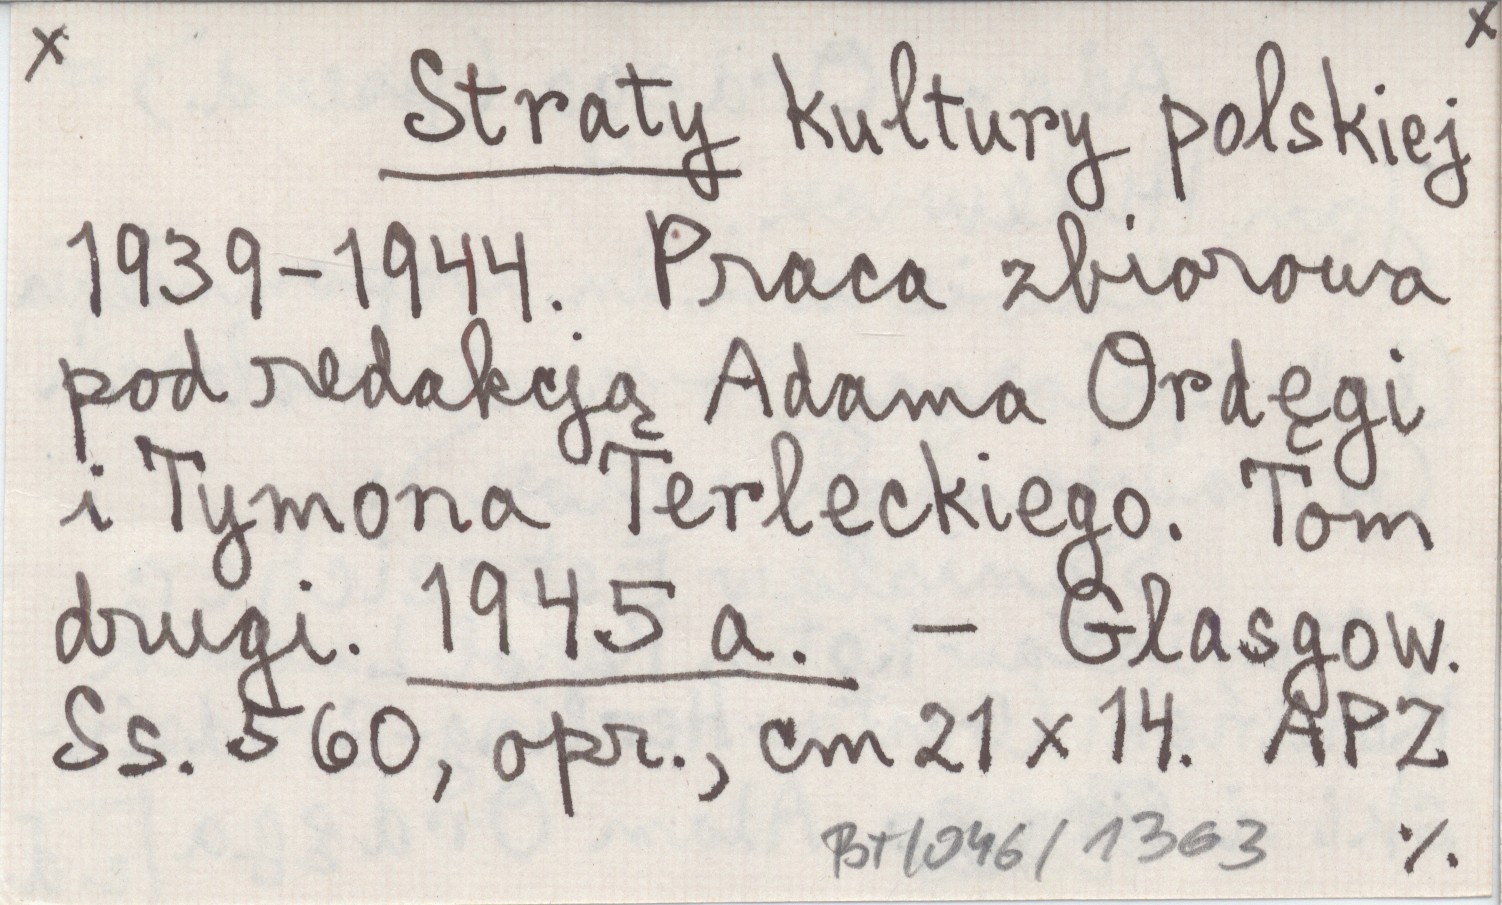 x x
Straty kultury polskiej
1939-1944. Praca zbiorowa
pod redakcją Adama Ordęgi
i Tymona Terleckiego. Tom
drugi. 1945 a. - Glasgow.
Ss. 560, opr., cm 21 x 14. APZ
1363 ./.